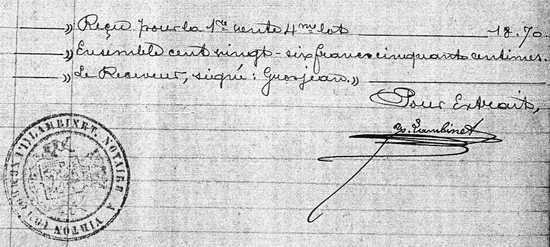 „ Reçu pour la 1re vente 4me lot 18.70
„ Ensemble cent vingt-six francs cinquante centimes.
„ Le Receveur, signé : Grosjean „
Pour Extrait,
Lambinet
LAMBINET, NOTAIRE A VIRTON